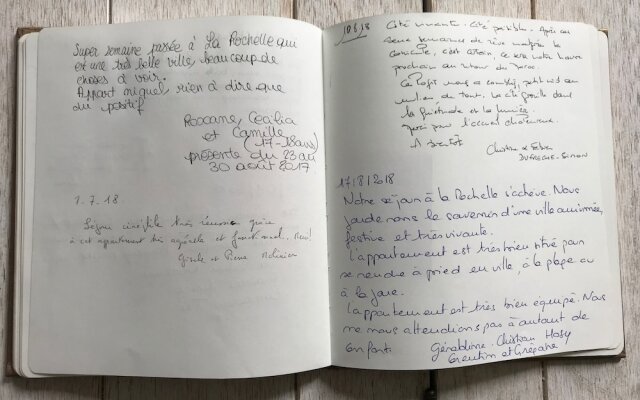 Super semaine passée à La Rochelle qui
est une très belle ville, beaucoup de
choses à voir.
Appart niquel rien à dire que
du positif
Roxane, Cecilia
et Camille
(17-18ans)
présente du 23 au
30 août 2017.
1.7.18
Séjour cinéphile très réussi grâce
à cet appartement très agréable et fonctionnel. Merci!
Gisèle et Pierre
10.8.18
Cité vivante. Cité paisible. Après
semaine de rêve malgré la
canicule, c'est
prochain
Ce logis nous a comblé, petit nid au
milieu de tout. La cité grouille dans
la quiétude et la lumière
Merci pour l'accueil chaleureux.
A bientôt
Christine et
DUFRECHE-SIMON
17/8/2018
Notre séjour à la Rochelle s'achève. Nous
garderons le souvenir d'une ville animée,
festive et très vivante.
L'appartement est très bien situé pour
se rendre à pied en ville, à la plage ou
à la gare.
L'appartement est très bien équipé. Nous
ne nous attendions pas à autant de
confort.
Géraldine, Christian
Corentin et Grégoire